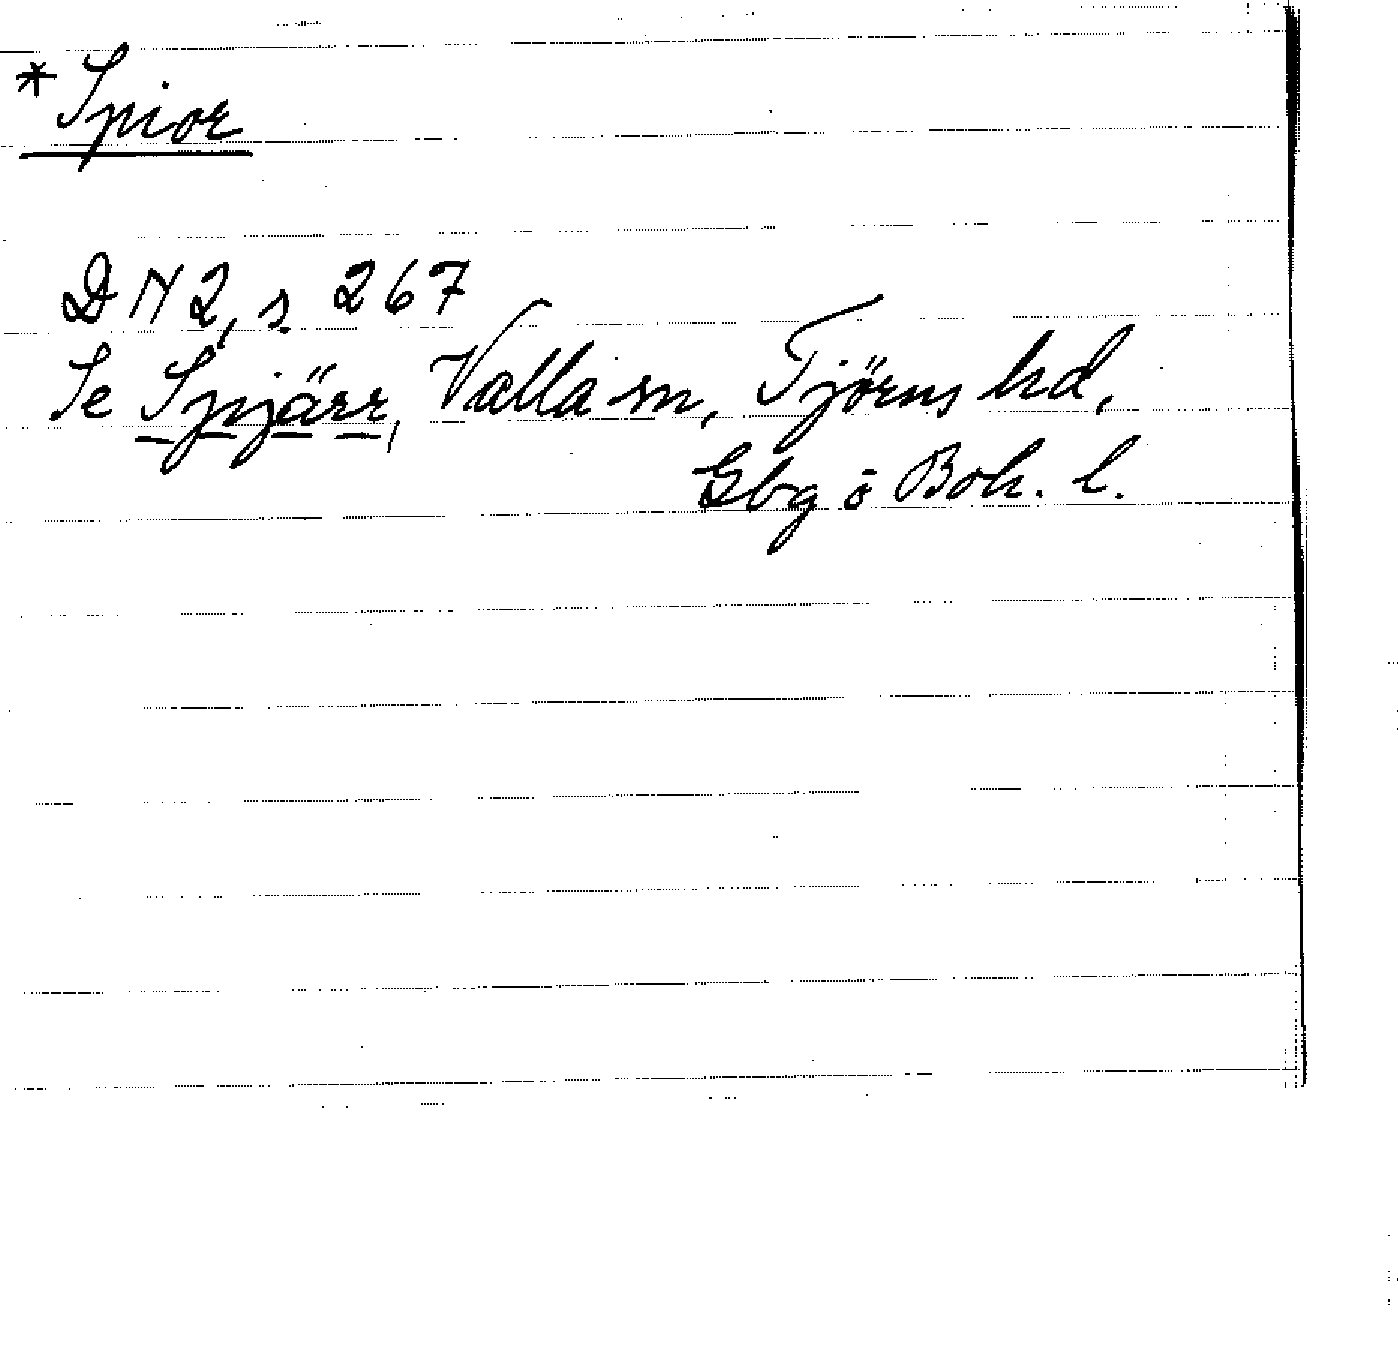 *Spior
DN 2, s. 267
Se Spjärr, Valla sn, Tjörns hd,
Gbg o Boh. l.